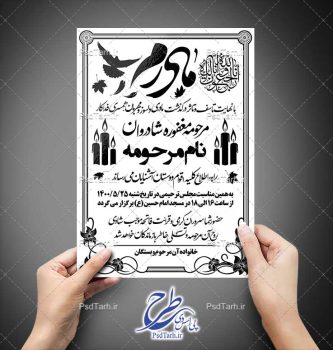 مادرم
انا لله و انا الیه راجعون
با نهایت تاسف و تاثر درگذشت مادری دلسوز و همسری فداکار
مرحومه مغفوره شادروان
نام مرحومه
را به اطلاع کلیه اقوام دوستان آشنایان می رساند
به همین مناسبت مجلس ترحیمی در تاریخ شنبه ۱۴۰۰/۵/۲۵
از ساعت ۱۶ الی ۱۸ در مسجد امام حسین (ع) برگزار می گردد
حضور شما سروران گرامی و قرائت فاتحه موجب شادی
روح آن مرحومه و تسلی خاطر بازماندگان خواهد شد
خانواده آن مرحوم و بستگان
PsdTarh.ir
PsdTarh.ir
طرح
PsdTarh.ir